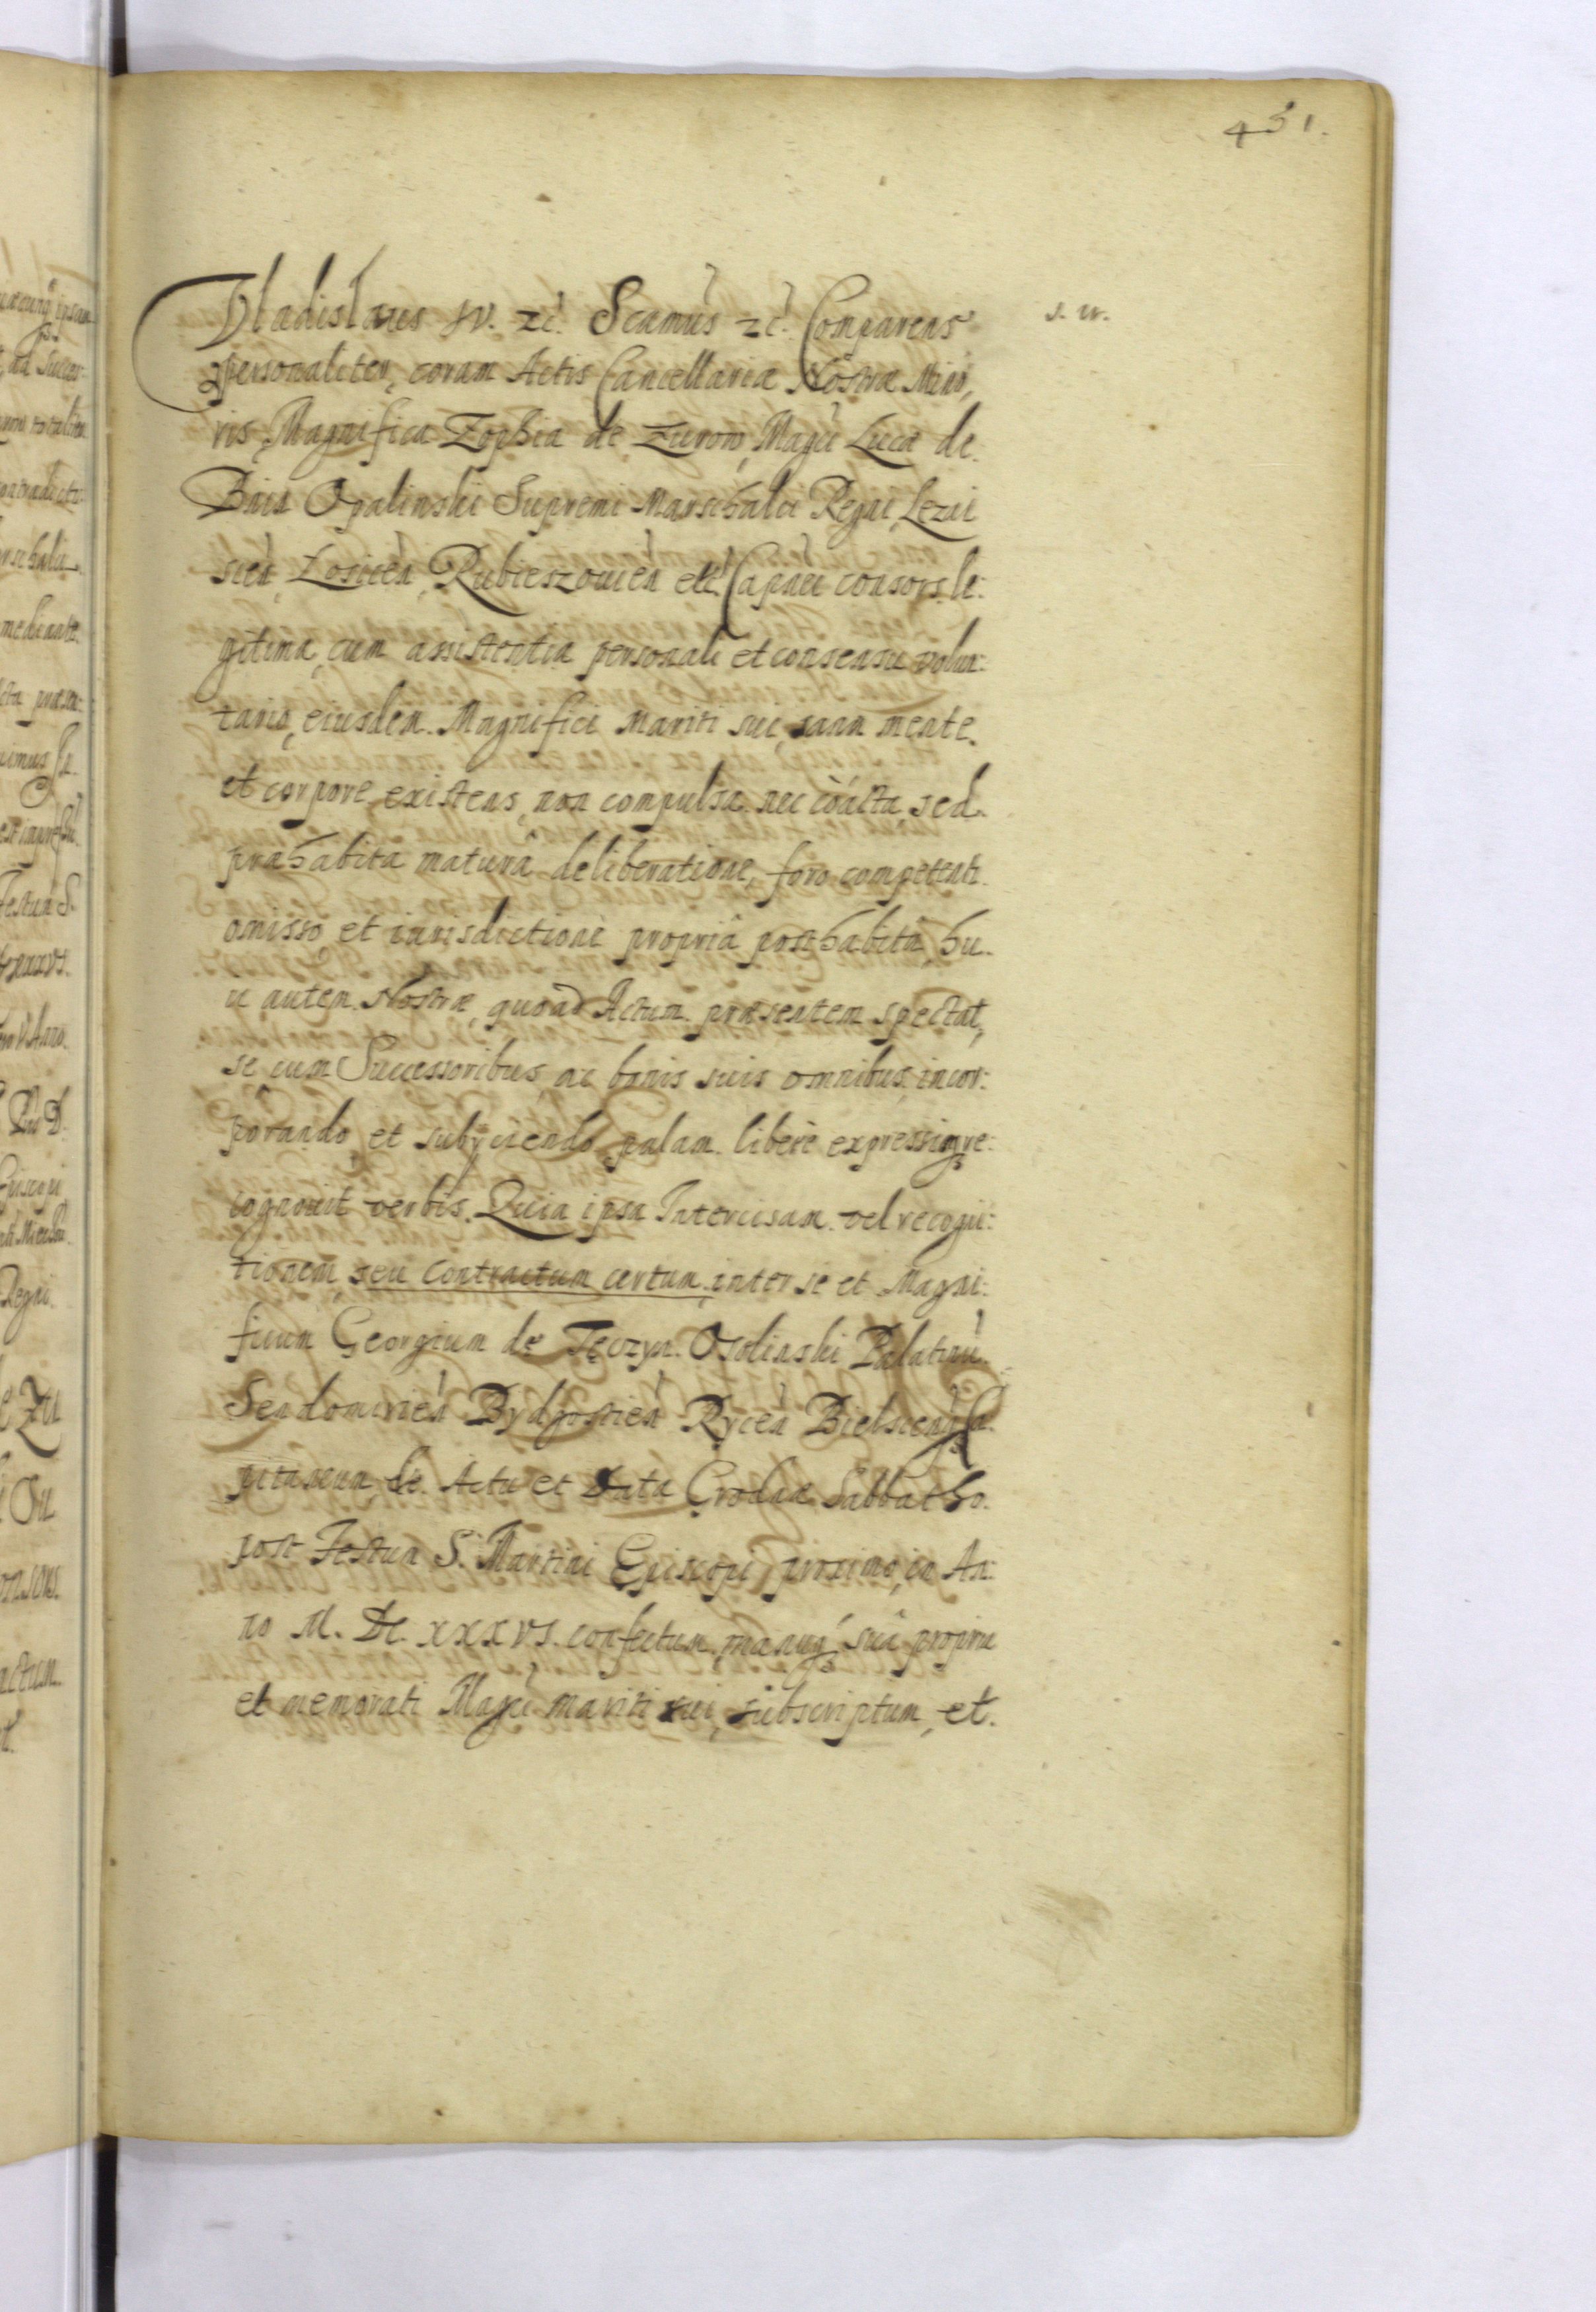 431.
Vladislaus IV. zc. Scamus zc. Comparens
s. w.
personaliter, coram Actis Cancellariæ Nostræ Mino,
ris, Magnifica Zophia de Zurow, Magci Lucæ de
Bnin Opalinski Supremi Marschalci Regni, Lezai
scen, Losicen, Rubieszouien etc. Capnei consors le:
gitima, cum assistentia personali et consensu volun:
tario, eiusdem Magnifici Mariti sui, sana mente
et corpore existens, non compulsa nec coacta, sed
præhabita maturâ deliberatione, foro competenti
omisso, et iurisdictione propriâ posthabitâ, hu
ic autem Nostræ, quoad Actum præsentem spectat,
se cum Successoribus ac bonis suis omnibus incor:
porando, et subyciendo, palam libere expressisq re:
cognouit verbis. Quia ipsa Intercisam vel recogni:
tionem, seu Contractum certum, inter se et Magni:
ficum Georgium de Tęczyn Osolinski Palatinu
Sendomirien Bydgostien Rycen Bielscenq Ca
pitaneum, de Actu et Data Grodnæ Sabbatho
post Festum S. Martini Episcopi, proximo, in An:
no M. DC. XXXVI. confectum, manuq sua propria
et memorati Magci mariti sui, subscriptum, et